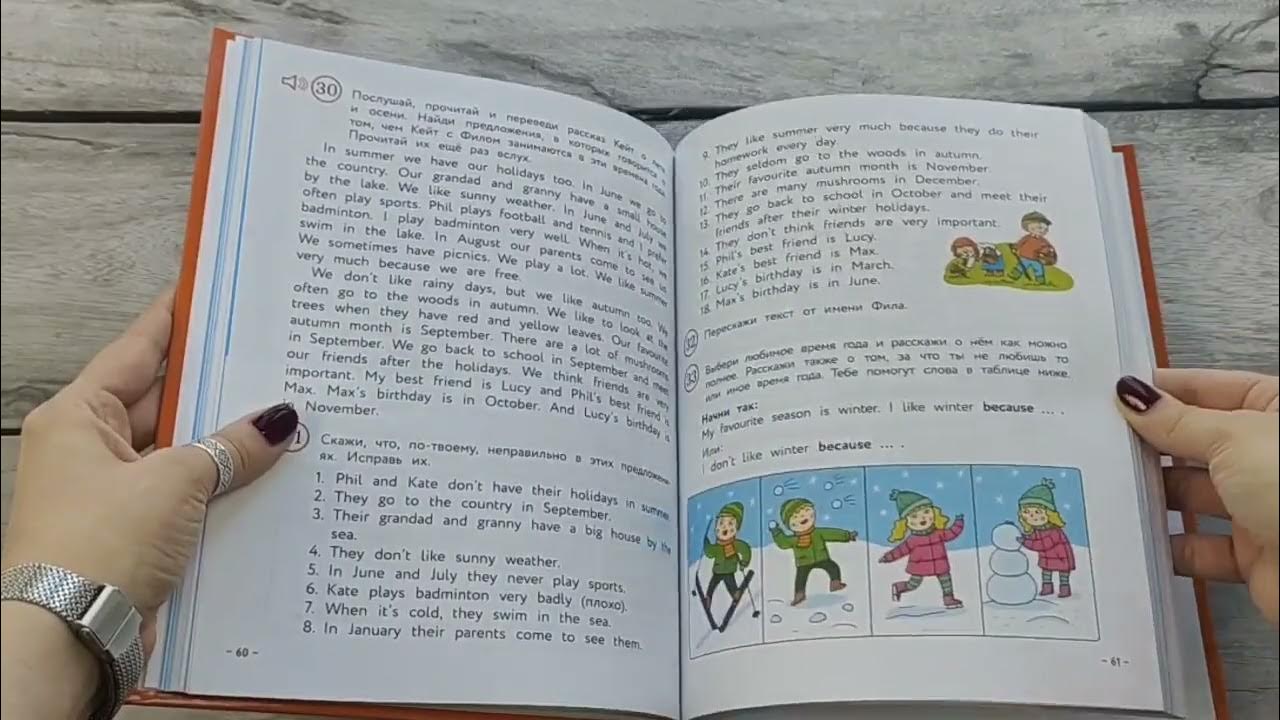 30 Послушай, прочитай и переведи рассказ Кейт о лете
и осени. Найди предложения, в которых говорится о
том, чем Кейт с Филом занимаются в эти времена года.
Прочитай их ещё раз вслух.
In summer we have our holidays too. In June we go to
the country. Our grandad and granny have a small house
by the lake. We like sunny weather. In June and July we
often play sports. Phil plays football and tennis and I prefer
badminton. I play badminton very well. When it's hot, we
swim in the lake. In August our parents come to see us.
We sometimes have picnics. We play a lot. We like summer
very much because we are free.
We don't like rainy days, but we like autumn too. We
often go to the woods in autumn. We like to look at the
trees when they have red and yellow leaves. Our favourite
autumn month is September. There are a lot of mushrooms
in September. We go back to school in September and meet
our friends after the holidays. We think friends are very
important. My best friend is Lucy and Phil's best friend is
Max. Max's birthday is in October. And Lucy's birthday is
November.
1 Скажи, что, по-твоему, неправильно в этих предложени-
ях. Исправь их.
1. Phil and Kate don't have their holidays in summer.
2. They go to the country in September.
3. Their grandad and granny have a big house by the
sea.
4. They don't like sunny weather.
5. In June and July they never play sports.
6. Kate plays badminton very badly (плохо).
7. When it's cold, they swim in the sea.
8. In January their parents come to see them.
– 60 –
9. They like summer very much because they do their
homework every day.
10. They seldom go to the woods in autumn.
11. Their favourite autumn month is November.
12. There are many mushrooms in December.
13. They go back to school in October and meet their
friends after their winter holidays.
14. They don't think friends are very important.
15. Phil's best friend is Lucy.
16. Kate's best friend is Max.
17. Lucy's birthday is in March.
18. Max's birthday is in June.
32 Перескажи текст от имени Фила.
33 Выбери любимое время года и расскажи о нём как можно
полнее. Расскажи также о том, за что ты не любишь то
или иное время года. Тебе помогут слова в таблице ниже.
Начни так:
My favourite season is winter. I like winter because ... .
Или:
I don't like winter because ... .
– 61 –